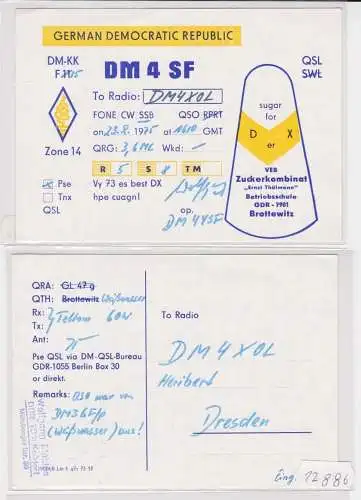 GERMAN DEMOCRATIC REPUBLIC
DM-KK
DM 4 SF
QSL
SWL
To Radio: DM4XOL
FONE CW SSB QSO RPRT
on 23.8.1975 at 1610 GMT
Zone 14
QRG: 3,6 Mc Wkd: —
R 5 S 8 TM
Pse Vy 73 es best DX
Tnx hpe cuagn!
QSL op.
DM4YSF
sugar
for
D X
er
VEB
Zuckerkombinat
"Ernst Thälmann"
Betriebsschule
GDR - 1901
Brottewitz
QRA: GL 47 g
QTH: Brottewitz Weißwasser
Rx:
Tx: Teltow 60W
Ant:
Pse QSL via DM-QSL-Bureau
GDR-1055 Berlin Box 30
or direkt.
Remarks: QSO war von
DM3GF/p
(Weißwasser) aus!
To Radio
DM4XOL
Heribert
Dresden
Eing. 12886